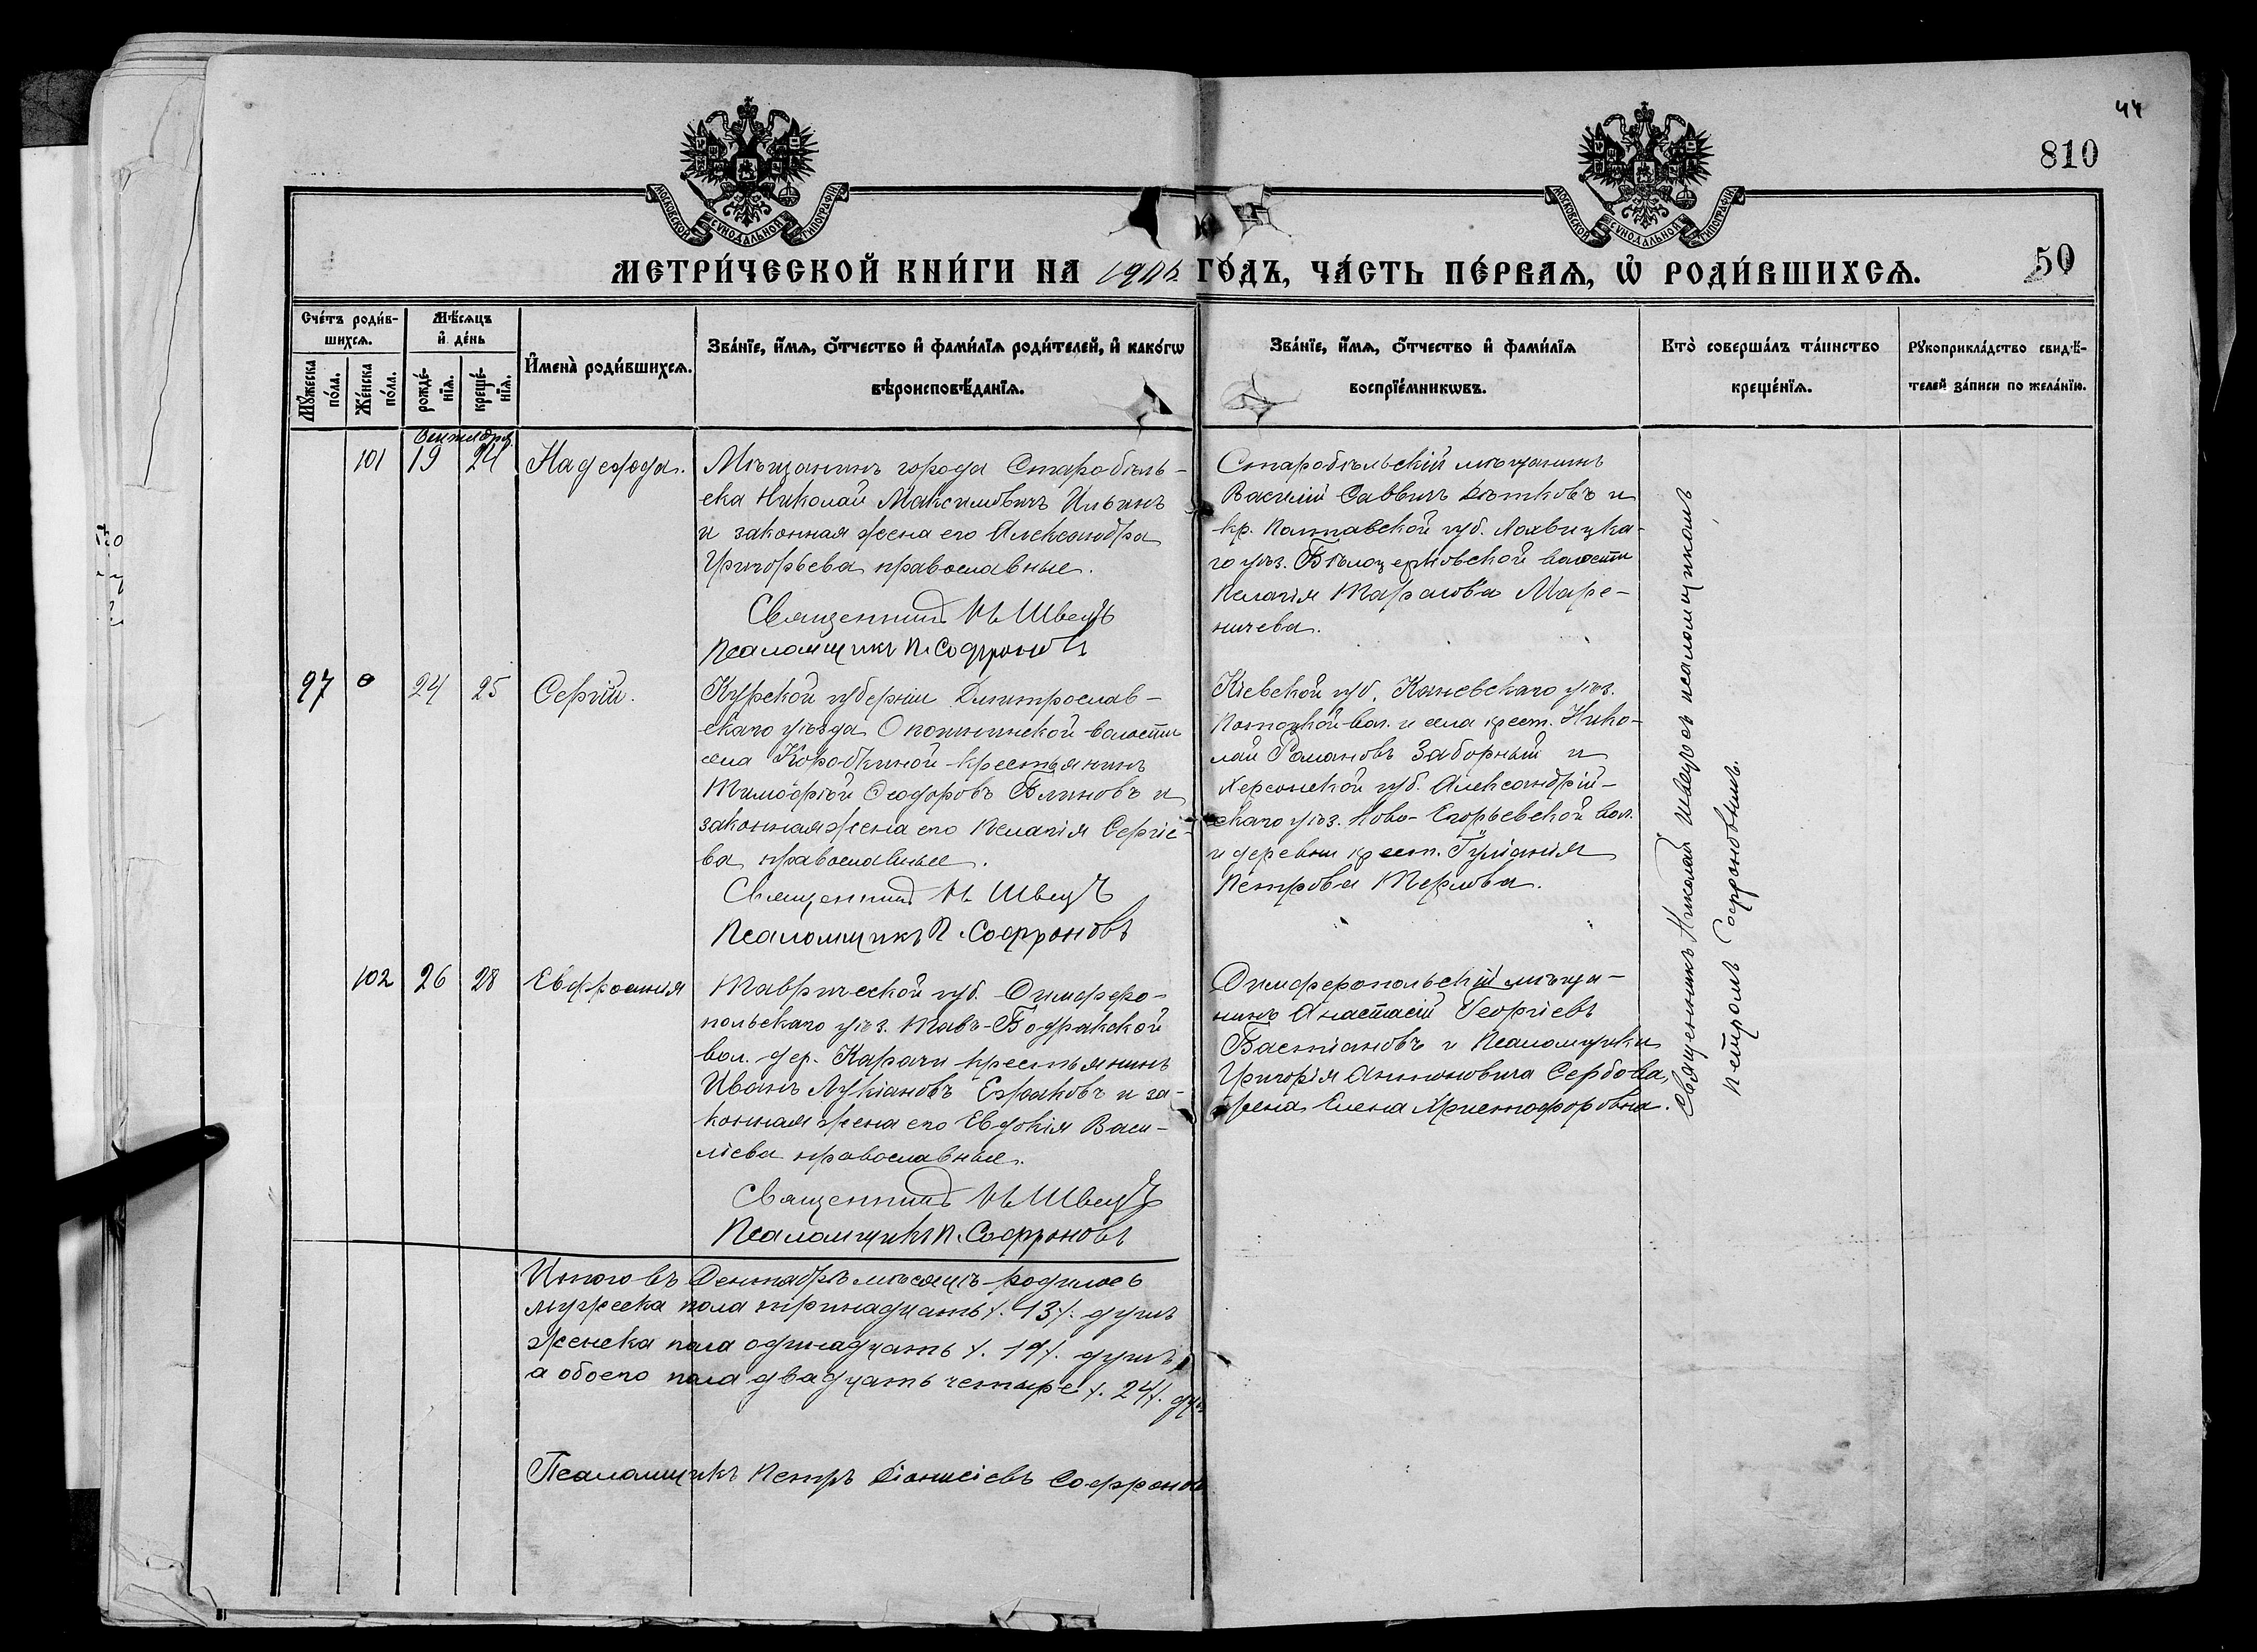 44
810
50
МОСКОВСКОЙ СѴНОДАЛЬНОЙ ТИПОГРАФІИ
МОСКОВСКОЙ СѴНОДАЛЬНОЙ ТИПОГРАФІИ
МЕТРИ́ЧЕСКОЙ КНИ́ГИ НА ГО́ДЪ, ЧА́СТЬ ПЕ́РВАѦ, Ѡ҆ РОДИ́ВШИХСѦ.
Сче́тъ роди́в-
шихсѧ.
Мꙋ́жеска по́ла.
Же́нска по́ла.
Мѣ́сѧцъ
и҆ де́нь
рожде́-
нїѧ.
креще́-
нїѧ.
И҆мена̀ роди́вшихсѧ.
Зва́нїе, и҆́мѧ, ѻ҆́тчество и҆ фами́лїѧ роди́телей, и҆ како́гѡ
вѣроисповѣ́данїѧ.
Зва́нїе, и҆́мѧ, ѻ҆́тчество и҆ фами́лїѧ
воспрїе́мникѡвъ.
Кто̀ соверша́лъ та́инство
креще́нїѧ.
Рꙋкоприкла́дство свидѣ́-
телей за́писи по жела́нїю.
Сентября
101 19 24 Надежда.
Мѣщанинъ города Старобѣль-
ска Николай Максимовичъ Ильинъ
и законная жена его Александра
Григорьева православные.
Священникъ Н Швецъ
Псаломщикъ П. Софроновъ
Старобѣльскій мѣщанинъ
Василій Саввичъ и
кр. Полтавской губ. Лохвицка-
го уѣз. Бѣлоцерковской волости
Пелагія Тарасова Маре-
ничева.
97 24 25 Сергій.
Курской губерніи Дмитрослав-
скаго уѣзда волости
села Коробкиной крестьянинъ
Тимофей Феодоровъ Блиновъ и
законная жена его Пелагія Сергіе-
ва православные.
Священникъ Н Швецъ
Псаломщикъ П. Софроновъ
Кіевской губ. Каневскаго уѣз.
Потоцкой вол. и села крест. Нико-
лай Романовъ Заборный и
Херсонской губ. Александрій-
скаго уѣз. Ново-Егорьевской вол.
и деревни крест. Іуліанія
Петрова
102 26 28 Евфросинія
Таврической губ. Симферо-
польскаго уѣз. Тавъ-Бодракской
вол. дер. Карачи крестьянинъ
Иванъ Лукіановъ Ермаковъ и за-
конная жена его Евдокія Васи-
ліева православные.
Священникъ Н Швецъ
Псаломщикъ П. Софроновъ
Симферопольскій мѣща-
нинъ Анастасій Георгіевъ
Бастіановъ и Псаломщика
Григорія Антоновича Сербова,
жена Елена Христофоровна.
Священникъ Николай Швецъ съ псаломщикомъ
Петромъ Софроновымъ.
Итого въ Сентябрѣ мѣсяцѣ родилось
мужеска пола тринадцать /. 13 /. душъ
женска пола одинадцать /. 11 /. душъ,
а обоего пола двадцать четыре /. 24 /. душ
Псаломщикъ Петръ Діонисіевъ Софроновъ